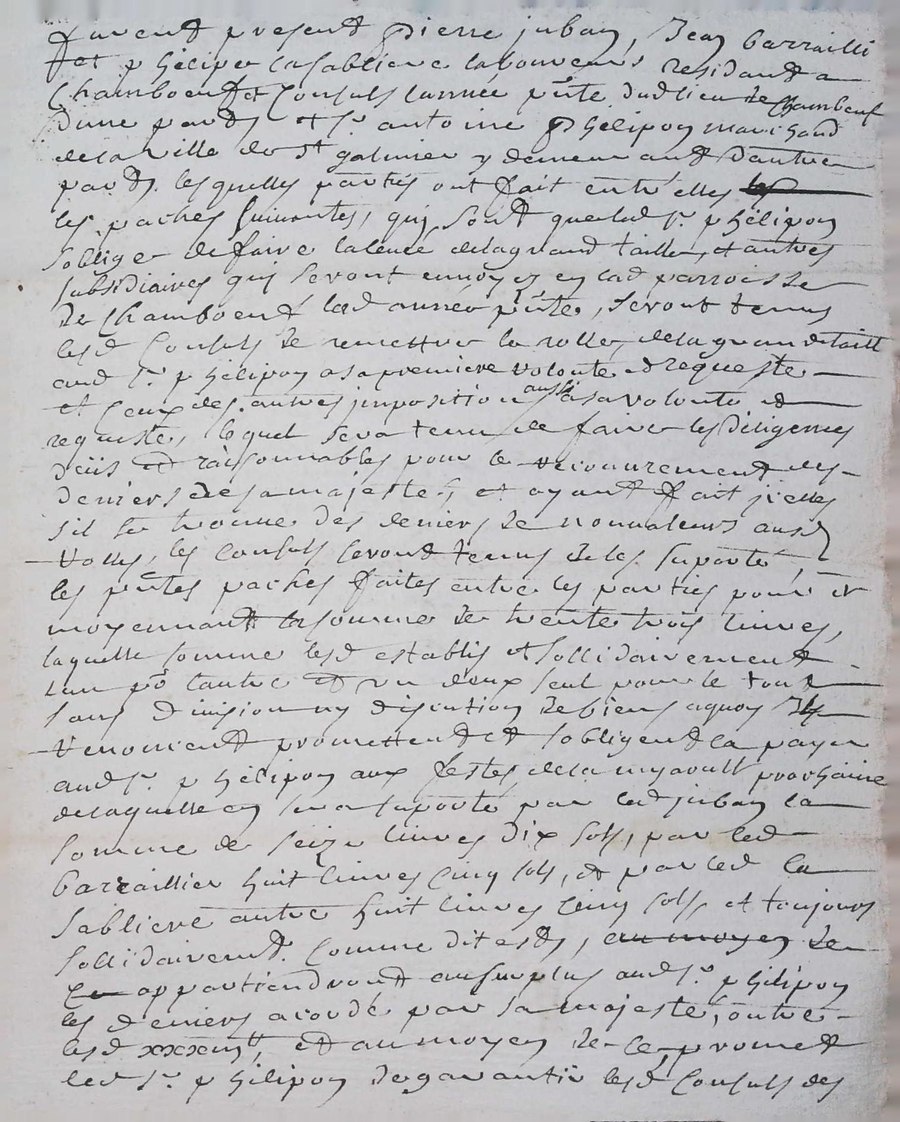 furent present pierre juban, Jean barrailli
et phéliper lasabliere laboureurs residant a
Chamboeuf et Consuls lannée pnte dud lieu de Chambeuf
dune part et sr antoine phélipon marchand
de la ville de st galmier y demeurant dautre
part lesquelles parties ont fait entre elles
les paches suivantes, qui sont que led sr phélipon
soblige de faire la levée de la grand taille, et autres
subsidiaires qui seront envoyez en lad parroisse
de Chamboeuf lad année pnte, seront tenus
lesd Consuls de remettre le rolle de la grande taill
aud sr phélipon a sa premiere volonté et requeste
et ceux des autres imposition aussi a sa volonté et
requeste, lequel sera tenu de faire les diligences
deües et raisonnables pour le recouvrement des
deniers de sa majesté, et ayant fait jcelles
sil se trouve des deniers de nonvaleurs ausd
rolles, les consuls seront tenus de les suporté,
les pntes paches faites entre les parties pour et
moyennant la somme de trente trois livres,
laquelle somme lesd establis et sollidairement
lun po lautre et un deux seul pour le tout
sans division ny discution de biens a quoy Ils
renoncent promettent et sobligent la payer
aud sr phélipon aux festes de la myaoust prochaine
de laquelle en sera suporté par led juban la
somme de seize livres dix sols, par led
barraillier huit livres cinq sols, et par led la
sabliere autre huit livres cinq sols et toujours
sollidairement comme dit est, au moyen de
ce appartiendront au surplus aud sr phélipon
les deniers acordé par sa majesté, outre
lesd xxxiii tt, et au moyen de ce, promet
led sr phélipon de garantir lesd Consuls des